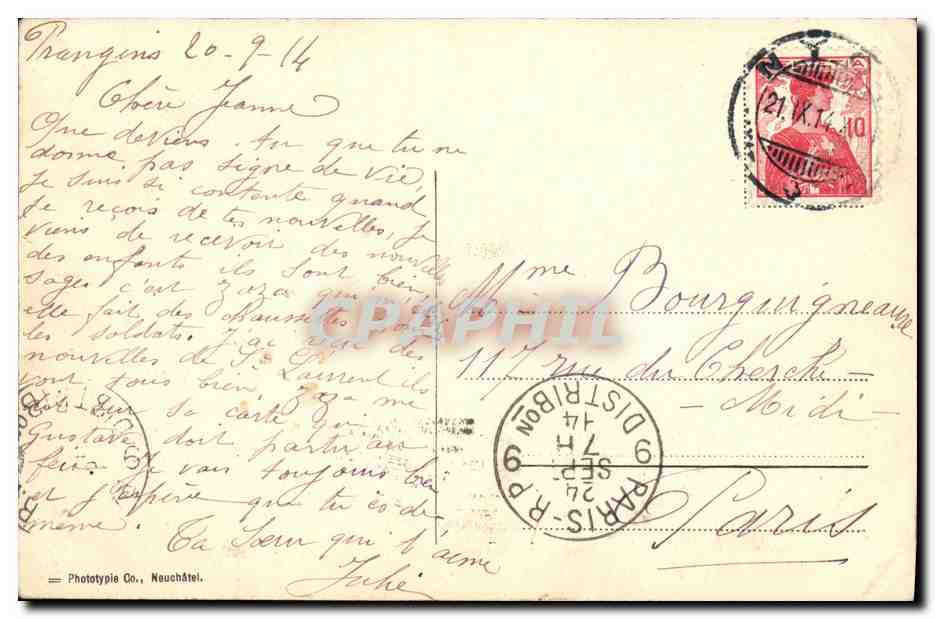 Prangins 20-9-14
Chère Jeanne
Que deviens tu que tu ne
donne pas signe de vie,
Je suis si contente quand
Je reçois de tes nouvelles, Je
viens de recevoir des nouvelles
des enfants ils sont bien
sages c'est Zaza qui
elle fait des chaussettes pour
les soldats. J'ai reçu des
nouvelles de St Laurent ils
vont tous bien, Zaza me
dit sur sa carte que
Gustave doit partir
Je vais toujours bien
et j'espère que tu es de
même.
Ta Sœur qui t'aime
Julie
Phototypie Co., Neuchâtel.
21.IX.14.
10
Mme Bourguigneaux
117 rue du Cherche-
- Midi -
Paris
PARIS-R.P 6
24
SEPT
7H
14
6 DISTRIBON
CPAPHIL